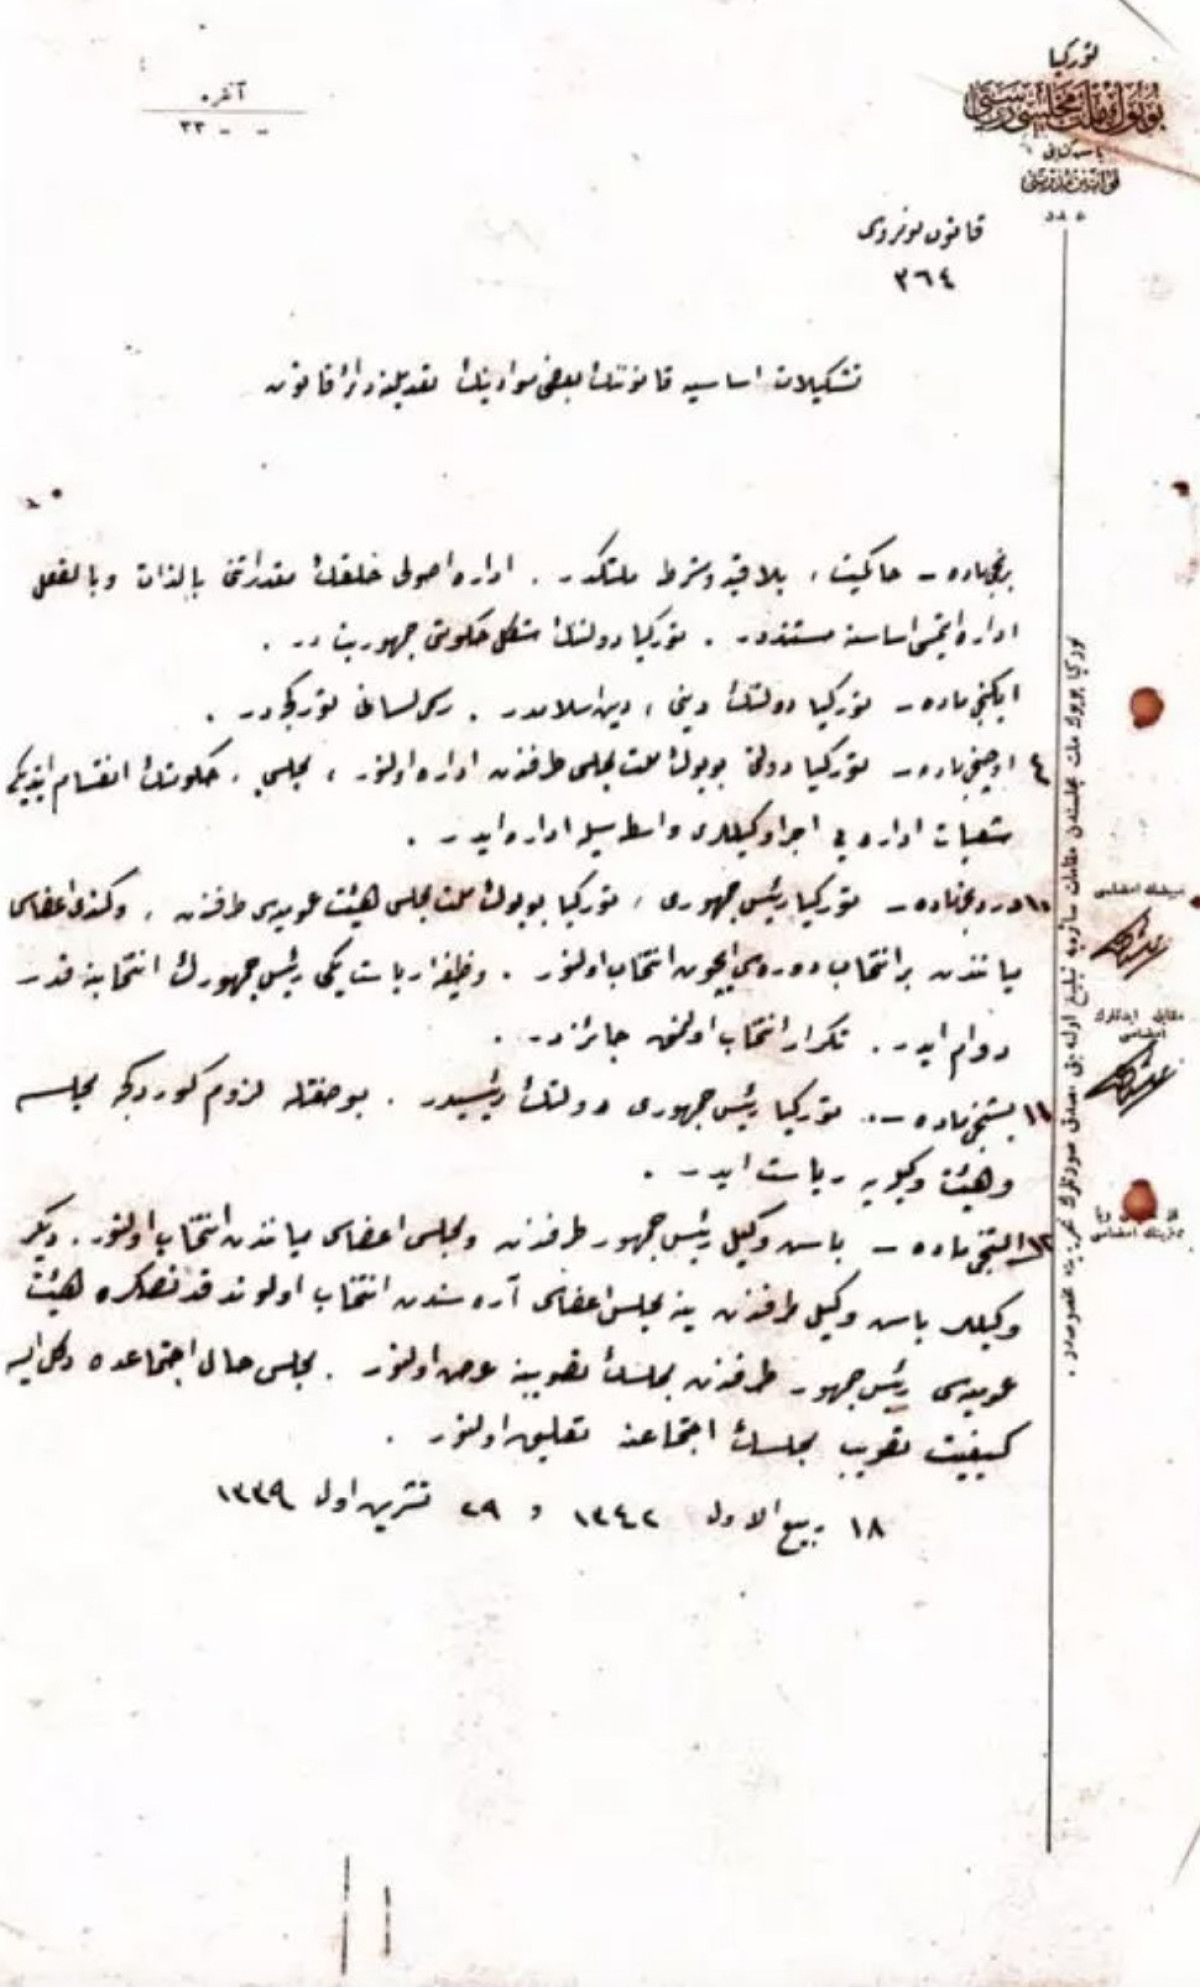 توركيا
بويوك ملت مجلسى رياستى
باش كتابتى
قوانين مديريتى
عدد
آنقره
٣٣ - -
قانون نومروسى
٣٦٤
تشكيلات اساسيه قانوننك بعض موادينك تعديلنه دائر قانون
برنجى ماده - حاكميت، بلا قيد و شرط ملتكدر . اداره اصولى خلقك مقدراتنى بالذات وبالفعل
اداره ايتمسى اساسنه مستنددر . توركيا دولتنك شكل حكومتى جمهوريت در .
ايكنجى ماده - توركيا دولتنك دينى ، دين اسلامدر . رسمى لسانى توركجه در .
٤ اوچنجى ماده - توركيا دولتى بويوك ملت مجلسى طرفندن اداره اولنور ، مجلس ، حكومتك انقسام ايتديكى
شعبات اداره يى اجرا وكيللرى واسطه سيله اداره ايدر .
١٠ دردنجى ماده - توركيا رئيس جمهورى ، توركيا بويوك ملت مجلسى هيئت عموميه سى طرفندن ، وكندى اعضاسى
مياننדن بر انتخاب دوره سى ايچون انتخاب اولنور . وظيفهٔ رياست يكى رئيس جمهورك انتخابنه قدر
دوام ايدر . تكرار انتخاب اولنمق جائزدر .
١١ بشنجى ماده - توركيا رئيس جمهورى دولتك رئيسيدر . بو صفتله لزوم كوردكجه مجلسه
وهيئت وكيليه يه رياست ايدر .
١٢ آلتنجى ماده - باش وكيل رئيس جمهور طرفندن ومجلس اعضاسى مياننדن انتخاب اولنور . ديكر
وكيللر باش وكيل طرفندن ينه مجلس اعضاسى آره سندن انتخاب اولوندقدنصكره هيئت
عموميه سى رئيس جمهور طرفندن مجلسك تصويبنه عرض اولنور . مجلس حال اجتماعده دكل ايسه
كيفيت تصويب مجلسك اجتماعنه تعليق اولنور .
١٨ ربيع الاول ١٣٤٢ و ٢٩ تشرين اول ١٣٣٩
توركيا بويوك ملت مجلسندن مقامات سائره يه تبليغ اولنه جق مصدق صورتلرك تحريرينه مخصوصدر .
مبيضك امضاسى
مقابله ايدنلرك
امضاسى
مديرينك امضاسى